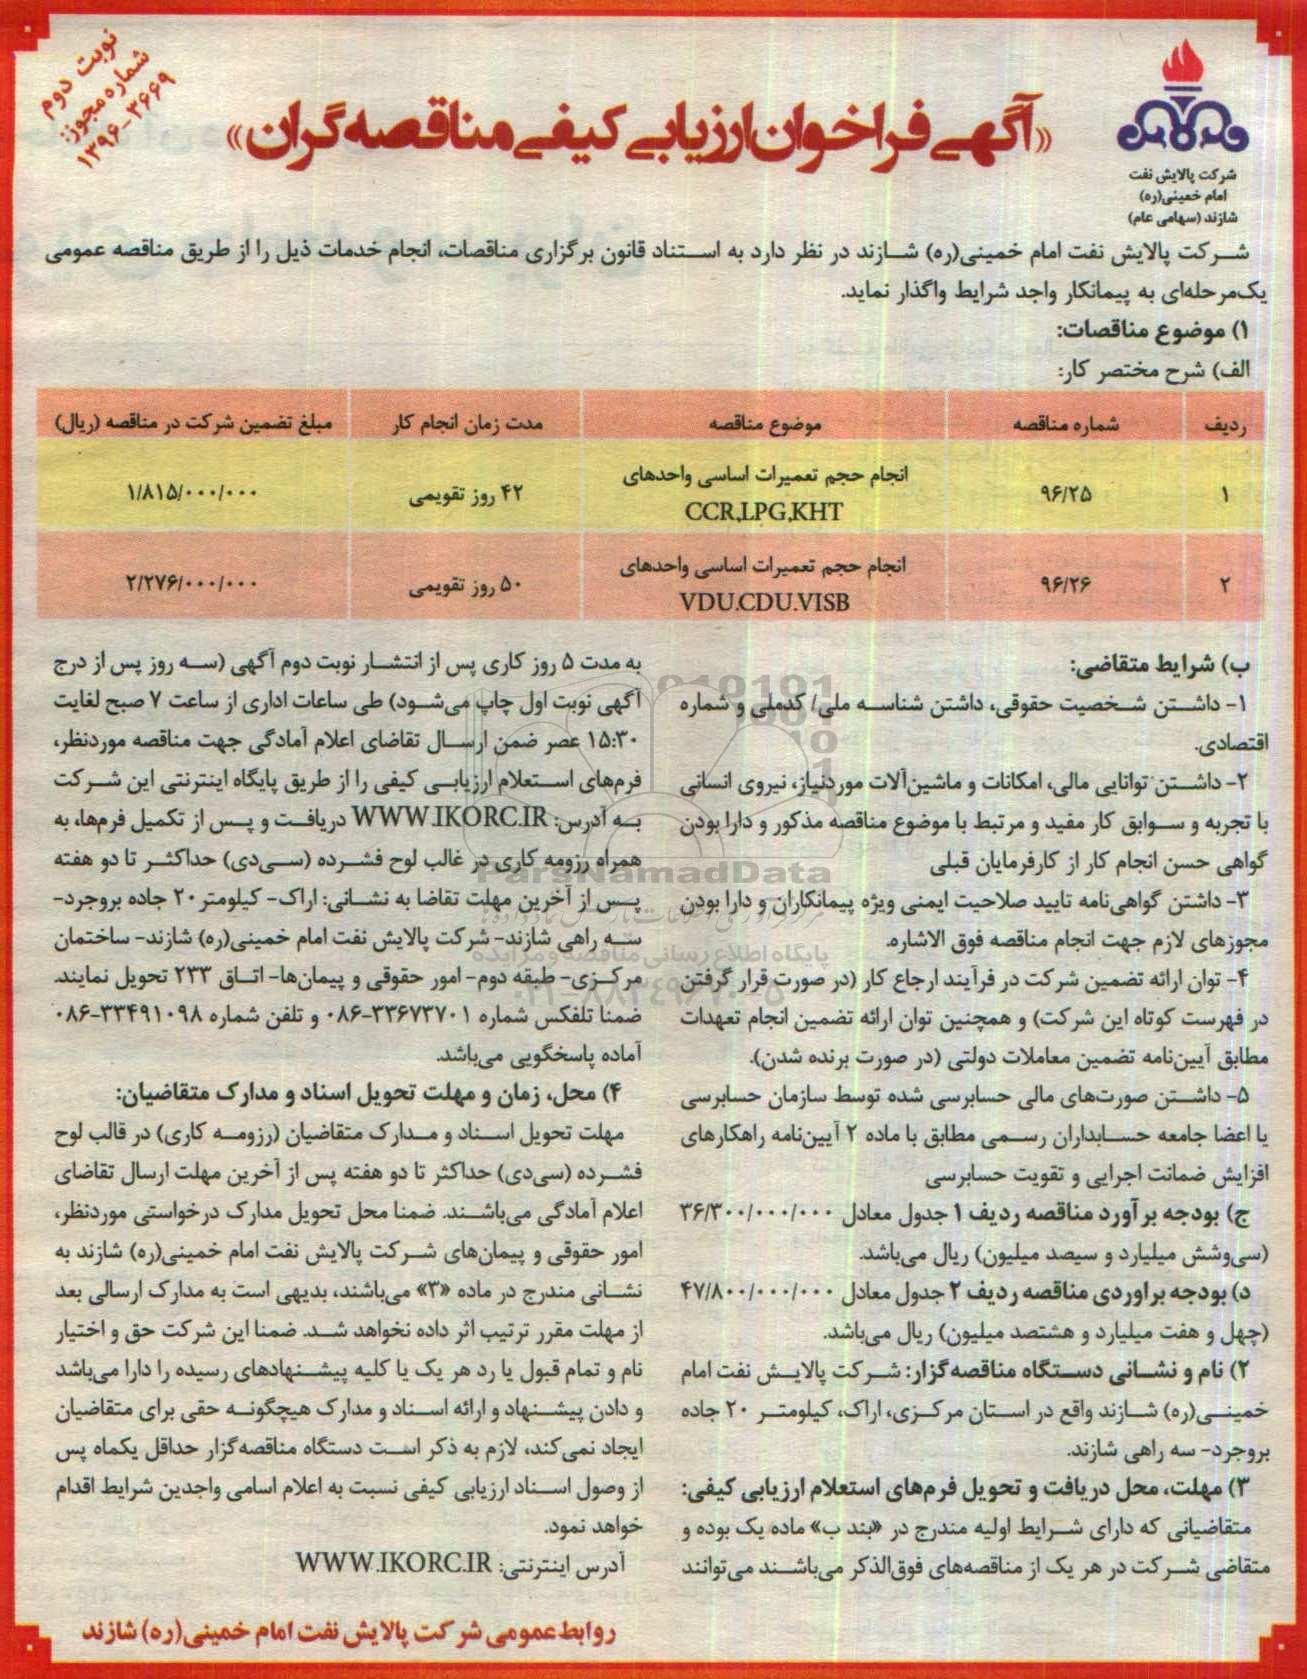 نوبت دوم
شماره مجوز:
۱۳۹۶-۳۶۶۹
«آگهی فراخوان ارزیابی کیفی مناقصه‌گران»
شرکت پالایش نفت
امام خمینی(ره)
شازند (سهامی عام)
شرکت پالایش نفت امام خمینی(ره) شازند در نظر دارد به استناد قانون برگزاری مناقصات، انجام خدمات ذیل را از طریق مناقصه عمومی
یک‌مرحله‌ای به پیمانکار واجد شرایط واگذار نماید.
۱) موضوع مناقصات:
الف) شرح مختصر کار:
ردیف شماره مناقصه موضوع مناقصه مدت زمان انجام کار مبلغ تضمین شرکت در مناقصه (ریال)
۱ ۹۶/۲۵ انجام حجم تعمیرات اساسی واحدهای CCR,LPG,KHT ۴۲ روز تقویمی ۱/۸۱۵/۰۰۰/۰۰۰
۲ ۹۶/۲۶ انجام حجم تعمیرات اساسی واحدهای VDU.CDU.VISB ۵۰ روز تقویمی ۲/۲۷۶/۰۰۰/۰۰۰
ب) شرایط متقاضی:
۱- داشتن شخصیت حقوقی، داشتن شناسه ملی/ کدملی و شماره
اقتصادی.
۲- داشتن توانایی مالی، امکانات و ماشین‌آلات موردنیاز، نیروی انسانی
با تجربه و سوابق کار مفید و مرتبط با موضوع مناقصه مذکور و دارا بودن
گواهی حسن انجام کار از کارفرمایان قبلی
۳- داشتن گواهی‌نامه تایید صلاحیت ایمنی ویژه پیمانکاران و دارا بودن
مجوزهای لازم جهت انجام مناقصه فوق الاشاره.
۴- توان ارائه تضمین شرکت در فرآیند ارجاع کار (در صورت قرار گرفتن
در فهرست کوتاه این شرکت) و همچنین توان ارائه تضمین انجام تعهدات
مطابق آیین‌نامه تضمین معاملات دولتی (در صورت برنده شدن).
۵- داشتن صورت‌های مالی حسابرسی شده توسط سازمان حسابرسی
یا اعضا جامعه حسابداران رسمی مطابق با ماده ۲ آیین‌نامه راهکارهای
افزایش ضمانت اجرایی و تقویت حسابرسی
ج) بودجه برآورد مناقصه ردیف ۱ جدول معادل ۳۶/۳۰۰/۰۰۰/۰۰۰
(سی‌وشش میلیارد و سیصد میلیون) ریال می‌باشد.
د) بودجه براوردی مناقصه ردیف ۲ جدول معادل ۴۷/۸۰۰/۰۰۰/۰۰۰
(چهل و هفت میلیارد و هشتصد میلیون) ریال می‌باشد.
۲) نام و نشانی دستگاه مناقصه‌گزار: شرکت پالایش نفت امام
خمینی(ره) شازند واقع در استان مرکزی، اراک، کیلومتر ۲۰ جاده
بروجرد- سه راهی شازند.
۳) مهلت، محل دریافت و تحویل فرم‌های استعلام ارزیابی کیفی:
متقاضیانی که دارای شرایط اولیه مندرج در «بند ب» ماده یک بوده و
متقاضی شرکت در هر یک از مناقصه‌های فوق‌الذکر می‌باشند می‌توانند
به مدت ۵ روز کاری پس از انتشار نوبت دوم آگهی (سه روز پس از درج
آگهی نوبت اول چاپ می‌شود) طی ساعات اداری از ساعت ۷ صبح لغایت
۱۵:۳۰ عصر ضمن ارسال تقاضای اعلام آمادگی جهت مناقصه موردنظر،
فرم‌های استعلام ارزیابی کیفی را از طریق پایگاه اینترنتی این شرکت
به آدرس: WWW.IKORC.IR دریافت و پس از تکمیل فرم‌ها، به
همراه رزومه کاری در غالب لوح فشرده (سی‌دی) حداکثر تا دو هفته
پس از آخرین مهلت تقاضا به نشانی: اراک- کیلومتر ۲۰ جاده بروجرد-
سه راهی شازند- شرکت پالایش نفت امام خمینی(ره) شازند- ساختمان
مرکزی- طبقه دوم- امور حقوقی و پیمان‌ها- اتاق ۲۳۳ تحویل نمایند.
ضمنا تلفکس شماره ۳۳۶۷۳۷۰۱-۰۸۶ و تلفن شماره ۳۳۴۹۱۰۹۸-۰۸۶
آماده پاسخگویی می‌باشد.
۴) محل، زمان و مهلت تحویل اسناد و مدارک متقاضیان:
مهلت تحویل اسناد و مدارک متقاضیان (رزومه کاری) در قالب لوح
فشرده (سی‌دی) حداکثر تا دو هفته پس از آخرین مهلت ارسال تقاضای
اعلام آمادگی می‌باشند. ضمنا محل تحویل مدارک درخواستی موردنظر،
امور حقوقی و پیمان‌های شرکت پالایش نفت امام خمینی(ره) شازند به
نشانی مندرج در ماده «۳» می‌باشند، بدیهی است به مدارک ارسالی بعد
از مهلت مقرر ترتیب اثر داده نخواهد شد. ضمنا این شرکت حق و اختیار
نام و تمام قبول یا رد هر یک یا کلیه پیشنهادهای رسیده را دارا می‌باشد
و دادن پیشنهاد و ارائه اسناد و مدارک هیچگونه حقی برای متقاضیان
ایجاد نمی‌کند، لازم به ذکر است دستگاه مناقصه‌گزار حداقل یکماه پس
از وصول اسناد ارزیابی کیفی نسبت به اعلام اسامی واجدین شرایط اقدام
خواهد نمود.
آدرس اینترنتی: WWW.IKORC.IR
روابط عمومی شرکت پالایش نفت امام خمینی(ره) شازند
ParsNamadData
پایگاه اطلاع رسانی مناقصه و مزایده